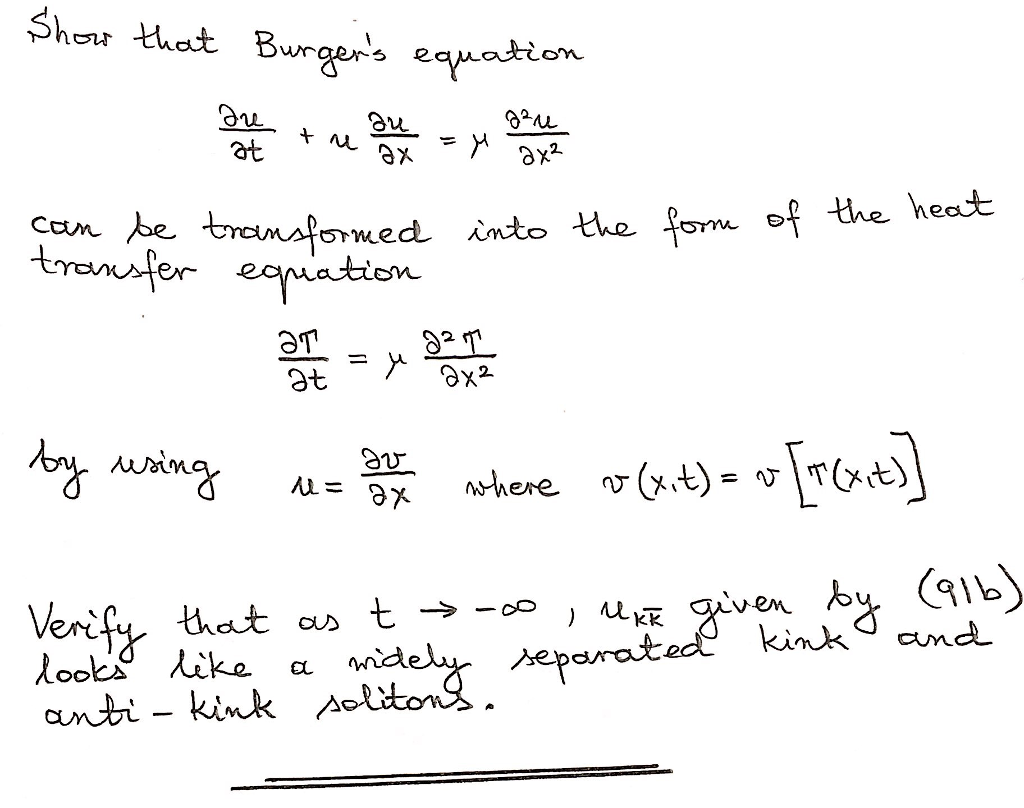 Show that Burger's equation
∂u/∂t + u ∂u/∂x = μ ∂²u/∂x²
can be transformed into the form of the heat
transfer equation
∂T/∂t = μ ∂²T/∂x²
by using u = ∂v/∂x where v(x,t) = v[T(x,t)]
Verify that as t → -∞, u_{KK̄} given by (91b)
looks like a widely separated kink and
anti-kink solitons.